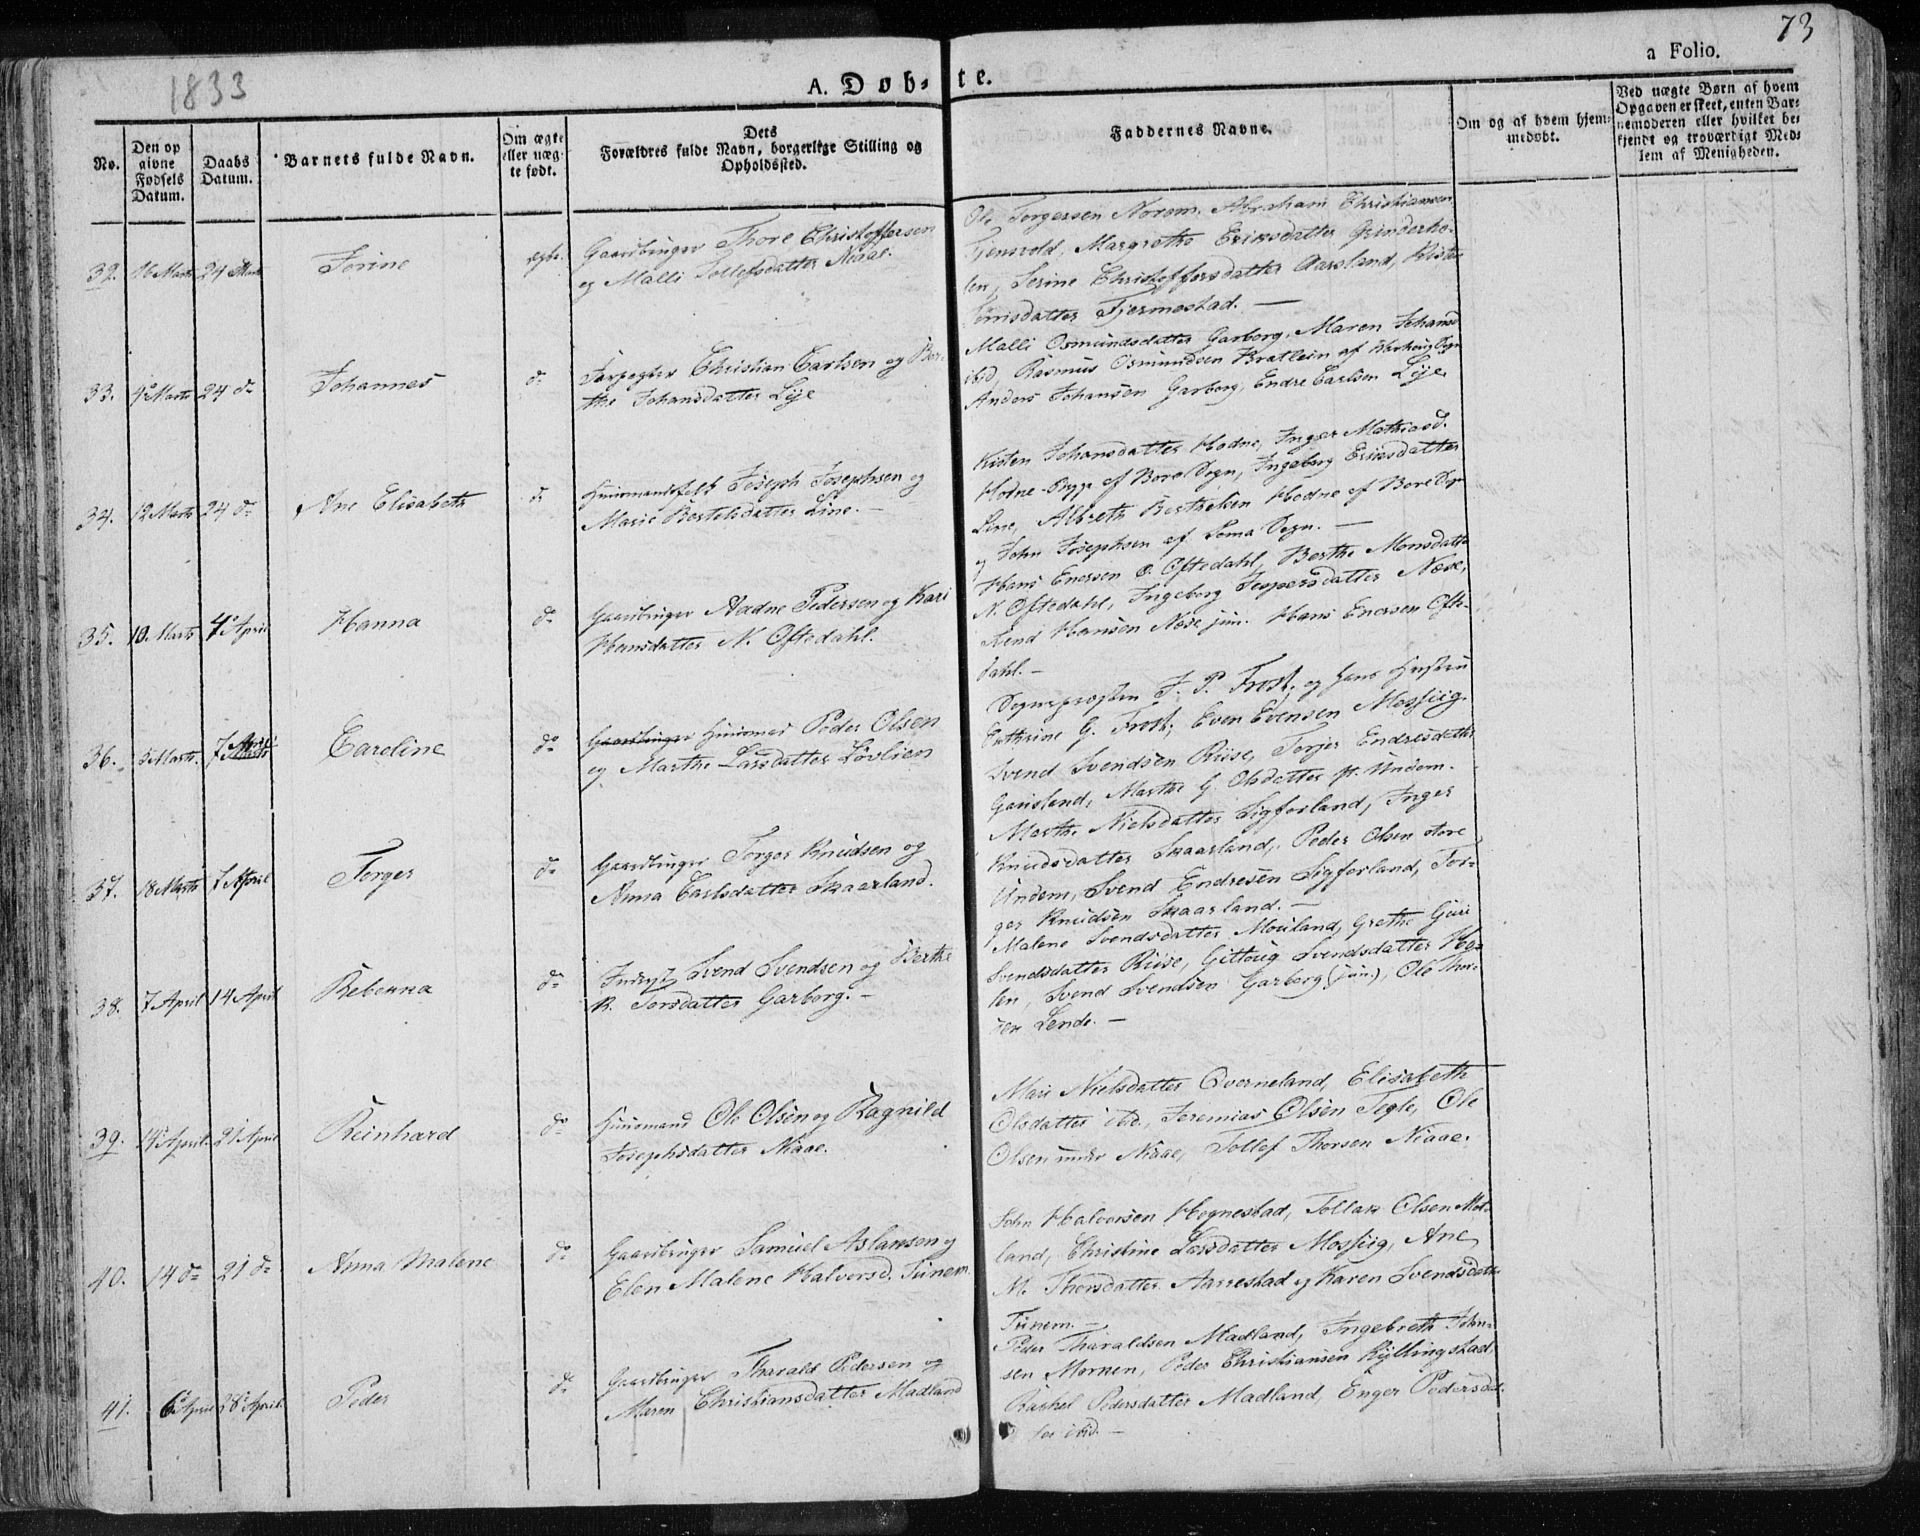 73
a Folio.
1833
A. Døb-te.
No.
Den op
givne
Fødsels
Datum.
Daabs
Datum.
Barnets fulde Navn.
Om ægte
eller uæg-
te født.
Dets
Forældres fulde Navn, borgerlige Stilling og
Opholdssted.
Faddernes Navne.
Om og af hvem hjem-
medøbt.
Ved uægte Børn af hvem
Opgaven er skeet, enten Bar-
nemoderen eller hvilket be-
kjendt og troværdigt Med-
lem af Menigheden.
32. 16 Marts 24 Marts Serine ægte. Gaardbruger Thore Christoffersen
og Malli Tollefsdatter Niaae.
Ole Torgersen Norem, Abraham Christiansen
Tjensvold, Margrethe Eriksdatter Grinderho-
len, Serine Christoffersdatter Aarsland,
Tjermestad. —
33. 9 Marts 24 do Johannes do Christian Carlsen og Ber-
the Johansdatter Lye
Malli Osmundsdatter Garborg, Maren Johansd.
ibid, Rasmus Osmundsen Bratlein af Sogn
Anders Johansen Garborg, Endre Carlsen Lye
34. 12 Marts 24 do Ane Elisabeth do Huusmandsfolk Joseph Josephsen og
Marie Bertelsdatter Line. —
Kisten Johansdatter Hodne, Inger Mathiasd.
Hodne af Bore Sogn, Ingeborg Eriksdatter
Line, Albreth Berthelsen Hodne af Bore Sogn
og John Josephsen af Soma Sogn. —
35. 10. Marts 4 April Hanna do Gaardbruger Aadne Pedersen og Kari
Hansdatter N. Oftedahl.
Hans Enersen O. Oftedahl, Berthe Monsdatter
N. Oftedahl, Ingeborg Jespersdatter Næse,
Hansen Næse jun. Hans Enersen Ofte-
dahl. —
36. 5 Marts. 7 April Caroline do Gaardbruger Huusmand Peder Olsen
og Marthe Larsdatter Løvlien
Sognepræsten J. P. Frost, og Hans Hustru
Cathrine G. Frost; Even Evensen Mossiig,
Svend Svendsen Riise, Torjer Endresdatter
Garsland, Marthe G. Olsdatter st. Undem.
37. 18 Marts 7 April Torger do Gaardbruger Torger Knudsen og
Anna Carlsdatter Skaarland.
Marthe Nielsdatter Sigferland, Inger
Knudsdatter Skaarland, Peder Olsen store
Undem, Svend Endresen Sigferland, Tor-
ger Knudsen Skaarland. —
38. 7 April 14 April Rebekka do Inderst Svend Svendsen og Berthe
K. Torsdatter Garborg. —
Malene Svendsdatter Mouland, Grethe Guri
Svendsdatter Riise, Svendsdatter Hog-
len, Svend Svendsen Garborg (jun.), Ole
sen Lende. —
39. 14 April. 21 April Reinhard do Huusmand Ole Olsen og Ragnild
Josephsdatter Niaae.
Mari Nielsdatter Qverneland, Elisabeth
Olsdatter ibid., Jeremias Olsen Tegle, Ole
Olsen under Niaae, Tollef Thorsen Niaae.
40. 14 do 21 do Anna Malene do Gaardbruger Samuel Aslaksen og
Elen Malene Halvorsd. Tunem.
John Halvorsen Hognestad, Tollak Olsen Mot-
land, Christine Larsdatter Mossiig, Ane
M. Thorsdatter Aarrestad og Karen Svendsdatter
Tunem. —
41. 6 April 28 April. Peder do Gaardbruger Tharald Pedersen og
Maren Christiansdatter Madland
Peder Tharaldsen Madland, Ingebreth John-
sen Mornen, Peder Christiansen Kyllingstad
Rachel Pedersdatter Madland, Enger Pedersdat-
ter ibid. —